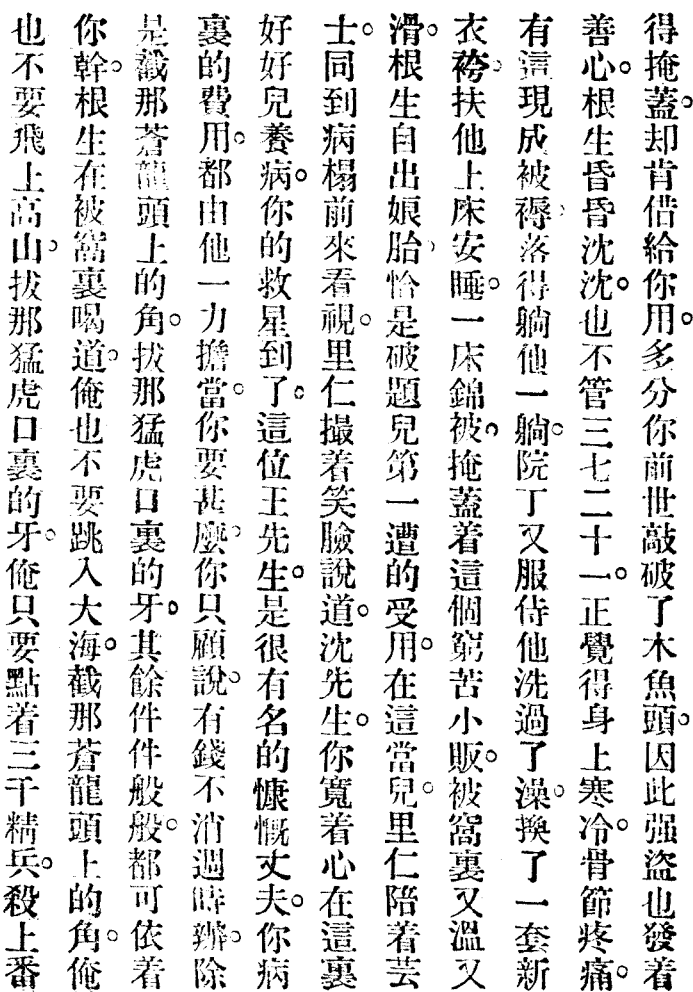 得掩蓋。却肯借給你用。多分你前世敲破了木魚頭。因此强盜也發着
善心。根生昏昏沈沈。也不管三七二十一。正覺得身上寒冷。骨節疼痛。
有這現成被褥。落得躺他一躺。院丁又服侍他洗過了澡。換了一套新
衣袴。扶他上床安睡。一床錦被。掩蓋着這個窮苦小販。被窩裏又溫又
滑。根生自出娘胎。恰是破題兒第一遭的受用。在這當兒。里仁陪着芸
士。同到病榻前來看視。里仁撮着笑臉說道。沈先生。你寬着心在這裏
好好兒養病。你的救星到了。這位王先生。是很有名的慷慨丈夫。你病
裏的費用。都由他一力擔當。你要甚麼。你只顧說。有錢不消過時辦。除
是截那蒼龍頭上的角。拔那猛虎口裏的牙。其餘件件般般。都可依着
你幹。根生在被窩裏喝道。俺也不要跳入大海。截那蒼龍頭上的角。俺
也不要飛上高山。拔那猛虎口裏的牙。俺只要點着三千精兵。殺上番